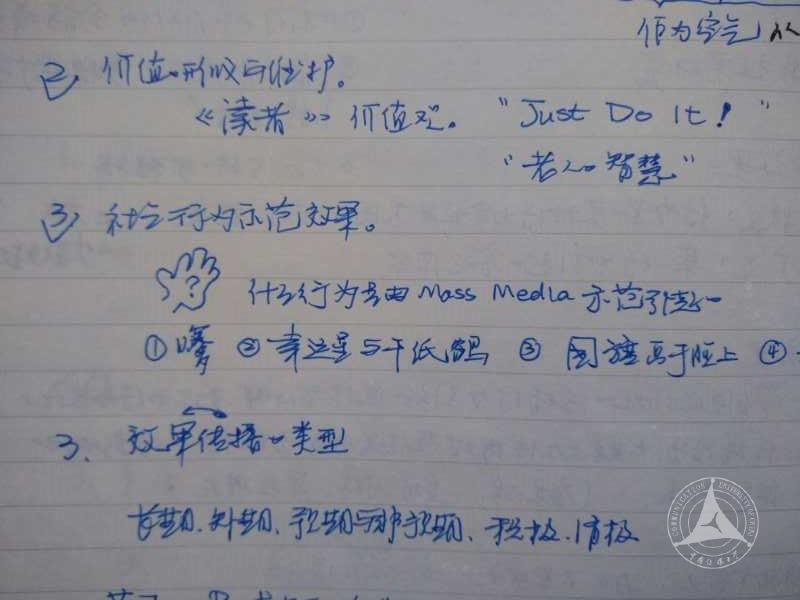 作为空气
2) 价值的形成与维护。
《读者》价值观。 "Just Do It!"
"老人的智慧"
3) 社会行为示范效果。
? 什么行为是由 Mass Media 示范引起的
① ② 幸运星与千纸鹤 ③ 国旗高于脸上 ④
3. 效果传播的类型
长期、短期、预期与非预期、积极、消极
COMMUNICATION UNIVERSITY OF CHINA
中国传媒大学